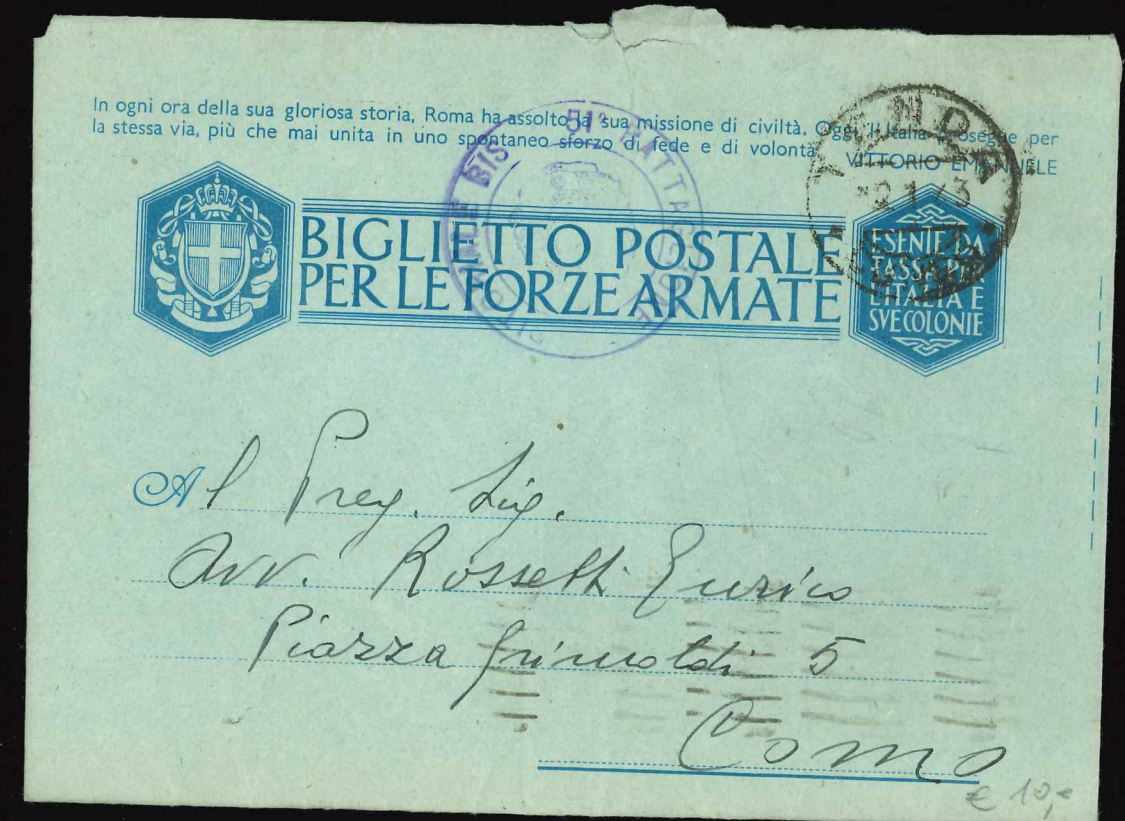 In ogni ora della sua gloriosa storia, Roma ha assolto la sua missione di civiltà. Oggi l'Italia prosegue per
la stessa via, più che mai unita in uno spontaneo sforzo di fede e di volontà
VITTORIO EMANUELE
51° BATTAGLIONE
BIS
TENDA
2 1 43
BIGLIETTO POSTALE
PER LE FORZE ARMATE
ESENTE DA
TASSA PER
L'ITALIA E
SVE COLONIE
Al Preg. Sig.
Avv. Rossetti Enrico
Piazza Grimoldi 5
Como
€ 10,-